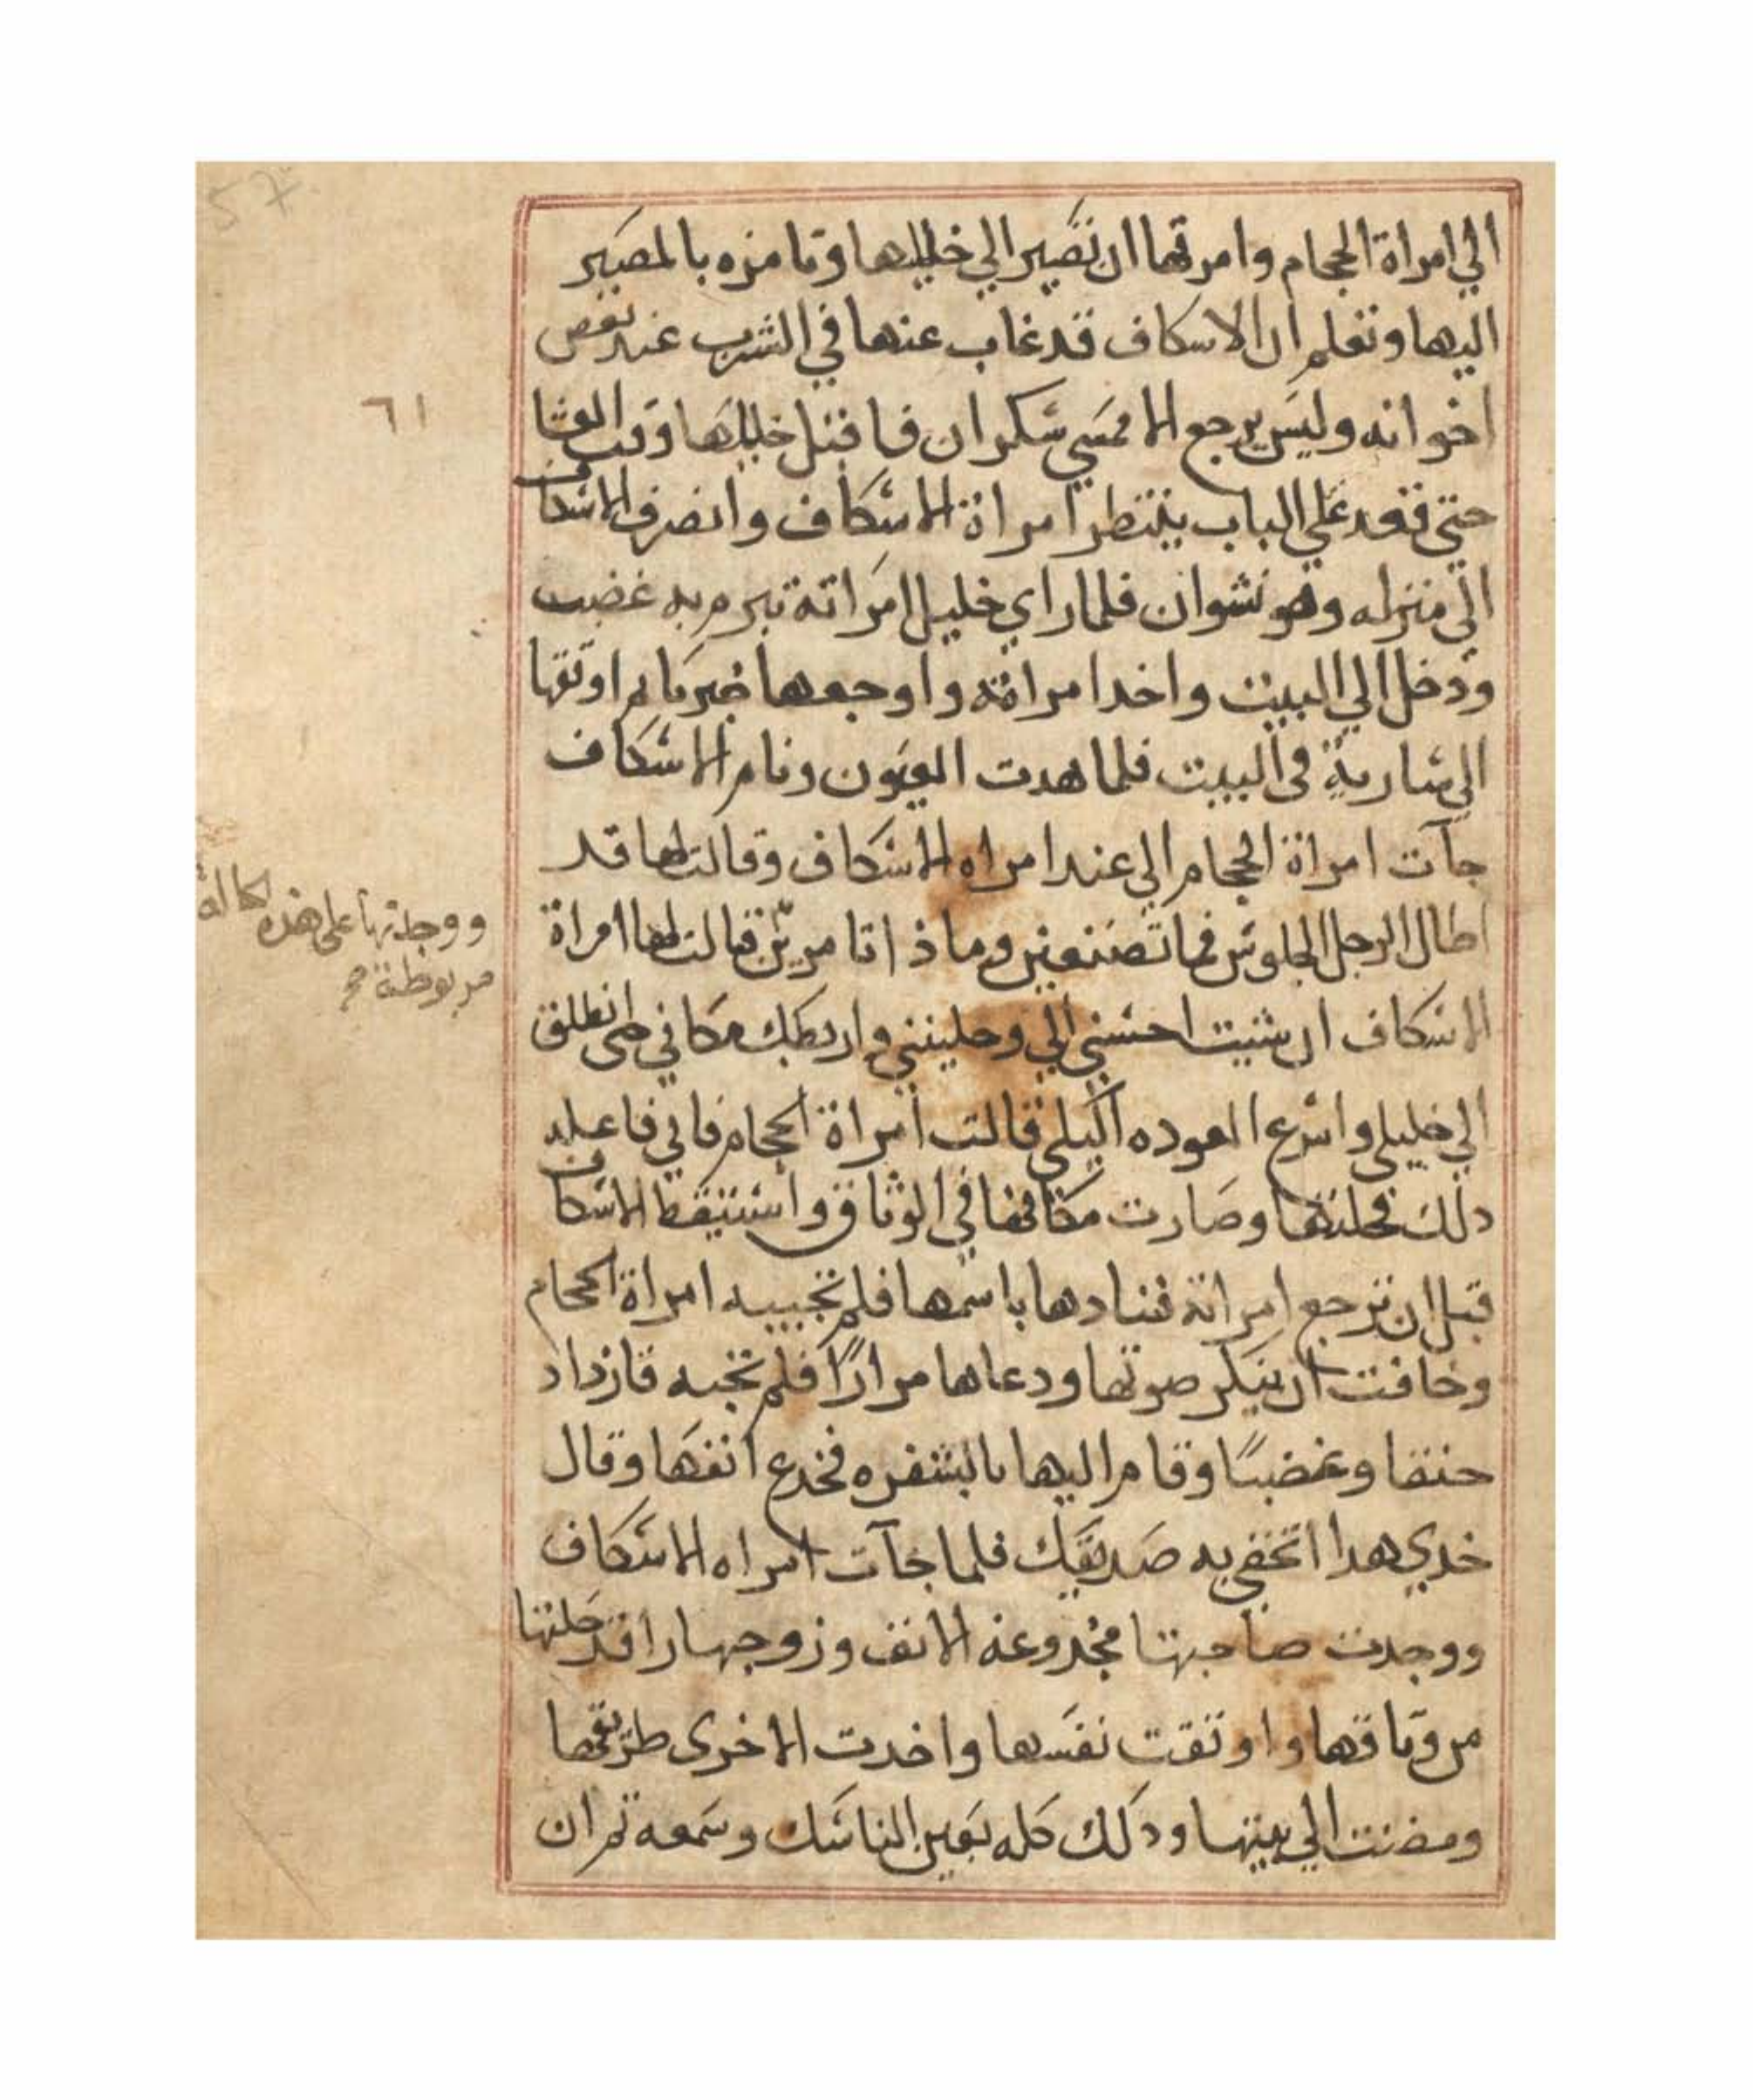 الي امراة الحجام وامرتها ان تصير الي خليلها وتامره بالمصير
اليها وتعلم ان الاسكاف قد غاب عنها في الشرب عند بعض
اخوانه وليس يرجع الا ممسي سكران فاقبل خليلها وقت العشا
حتي قعد علي الباب ينتظر امراة الاسكاف وانصرف الاسكاف
الي منزله وهو نشوان فلما راي خليل امراته تبرم به غضب
ودخل الي البيت واخد امراته واوجعها ضربا ثم اوثقها
الي سارية في البيت فلما هدت العيون ونام الاسكاف
جآت امراة الحجام الي عند امراه الاسكاف وقالت لها قد
اطال الرجل الجلوس فما تصنعين وماذا تامرين قالت لها امراة
الاسكاف ان شيت احسني الي وحليني واربطك مكاني حتي انطلق
الي خليلي واسرع العوده اليكي قالت امراة الحجام فاني فاعله
دلك فحلتها وصارت مكانها في الوثاق واستيقظ الاسكاف
قبل ان ترجع امراته فنادها باسمها فلم تجيبه امراة الحجام
وخافت ان ينكر صوتها ودعاها مرارًا فلم تجبه فازداد
حنقا وغضبًا وقام اليها بالشفره فخدع انفها وقال
خدي هدا اتحفي به صديقك فلما جآت امراه الاسكاف
ووجدت صاحبتها مخدوعه الانف وزوجها راقد حلتها
من وثاقها واوثقت نفسها واخدت الاخرى طريقها
ومضت الي بيتها ودلك كله بعين الناسك وسمعه ثم ان
57
٦١
ووجدتها على هذه الحالة
مربوطة صح